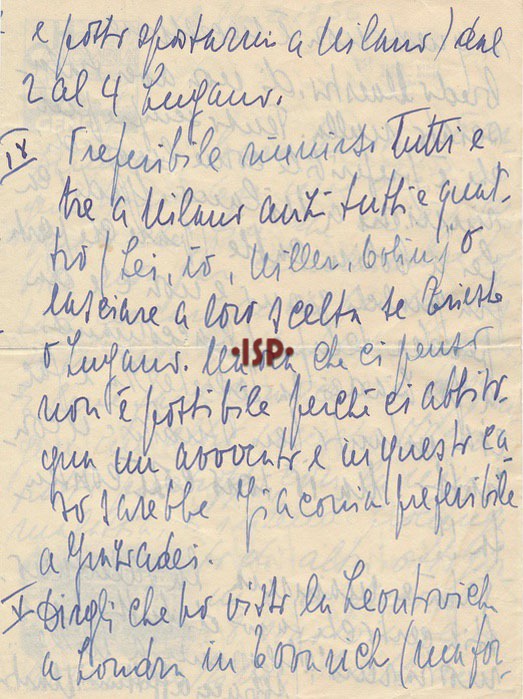 e posso spostarmi a Milano) dal
2 al 4 Lugano.
IV Preferibile riunirsi tutti e
tre a Milano anzi tutti e quat-
tro (Lei, io, Miller, ) o
lasciare a loro scelta se Trieste
o Lugano. che ci penso
non è possibile perché ci abbiso-
gna un avvocato e in questo ca-
so sarebbe Giaconia preferibile
a
V Dirgli che ho visto la Leontovich
a Londra in (ma for-
·ISP·